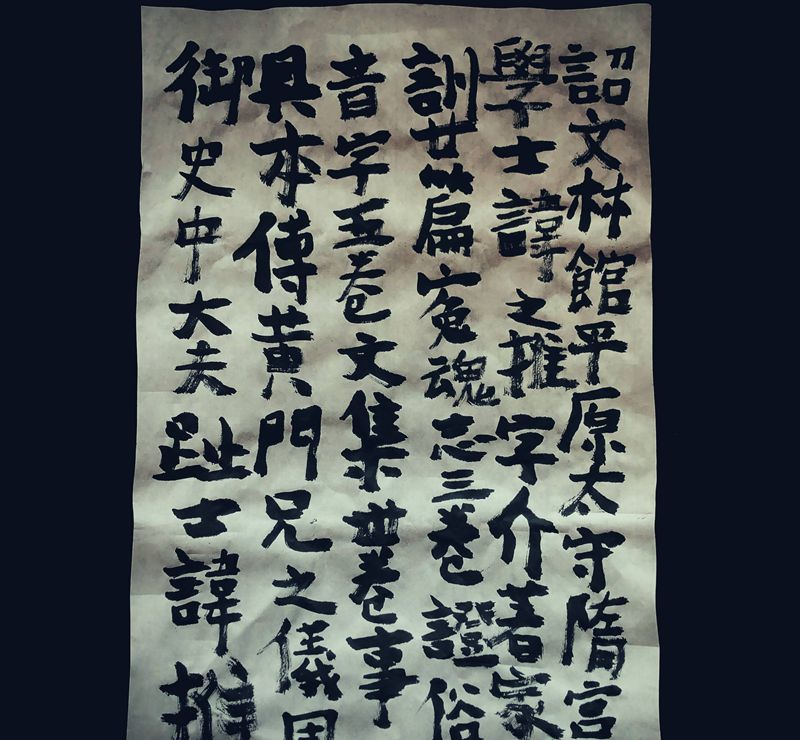 詔文林館平原太守隋宫
學士諱之推字介著家
訓廿篇寃魂志三卷證俗
音字五卷文集卅卷事
具本傳黄門兄之儀周
御史中大夫趾士諱推